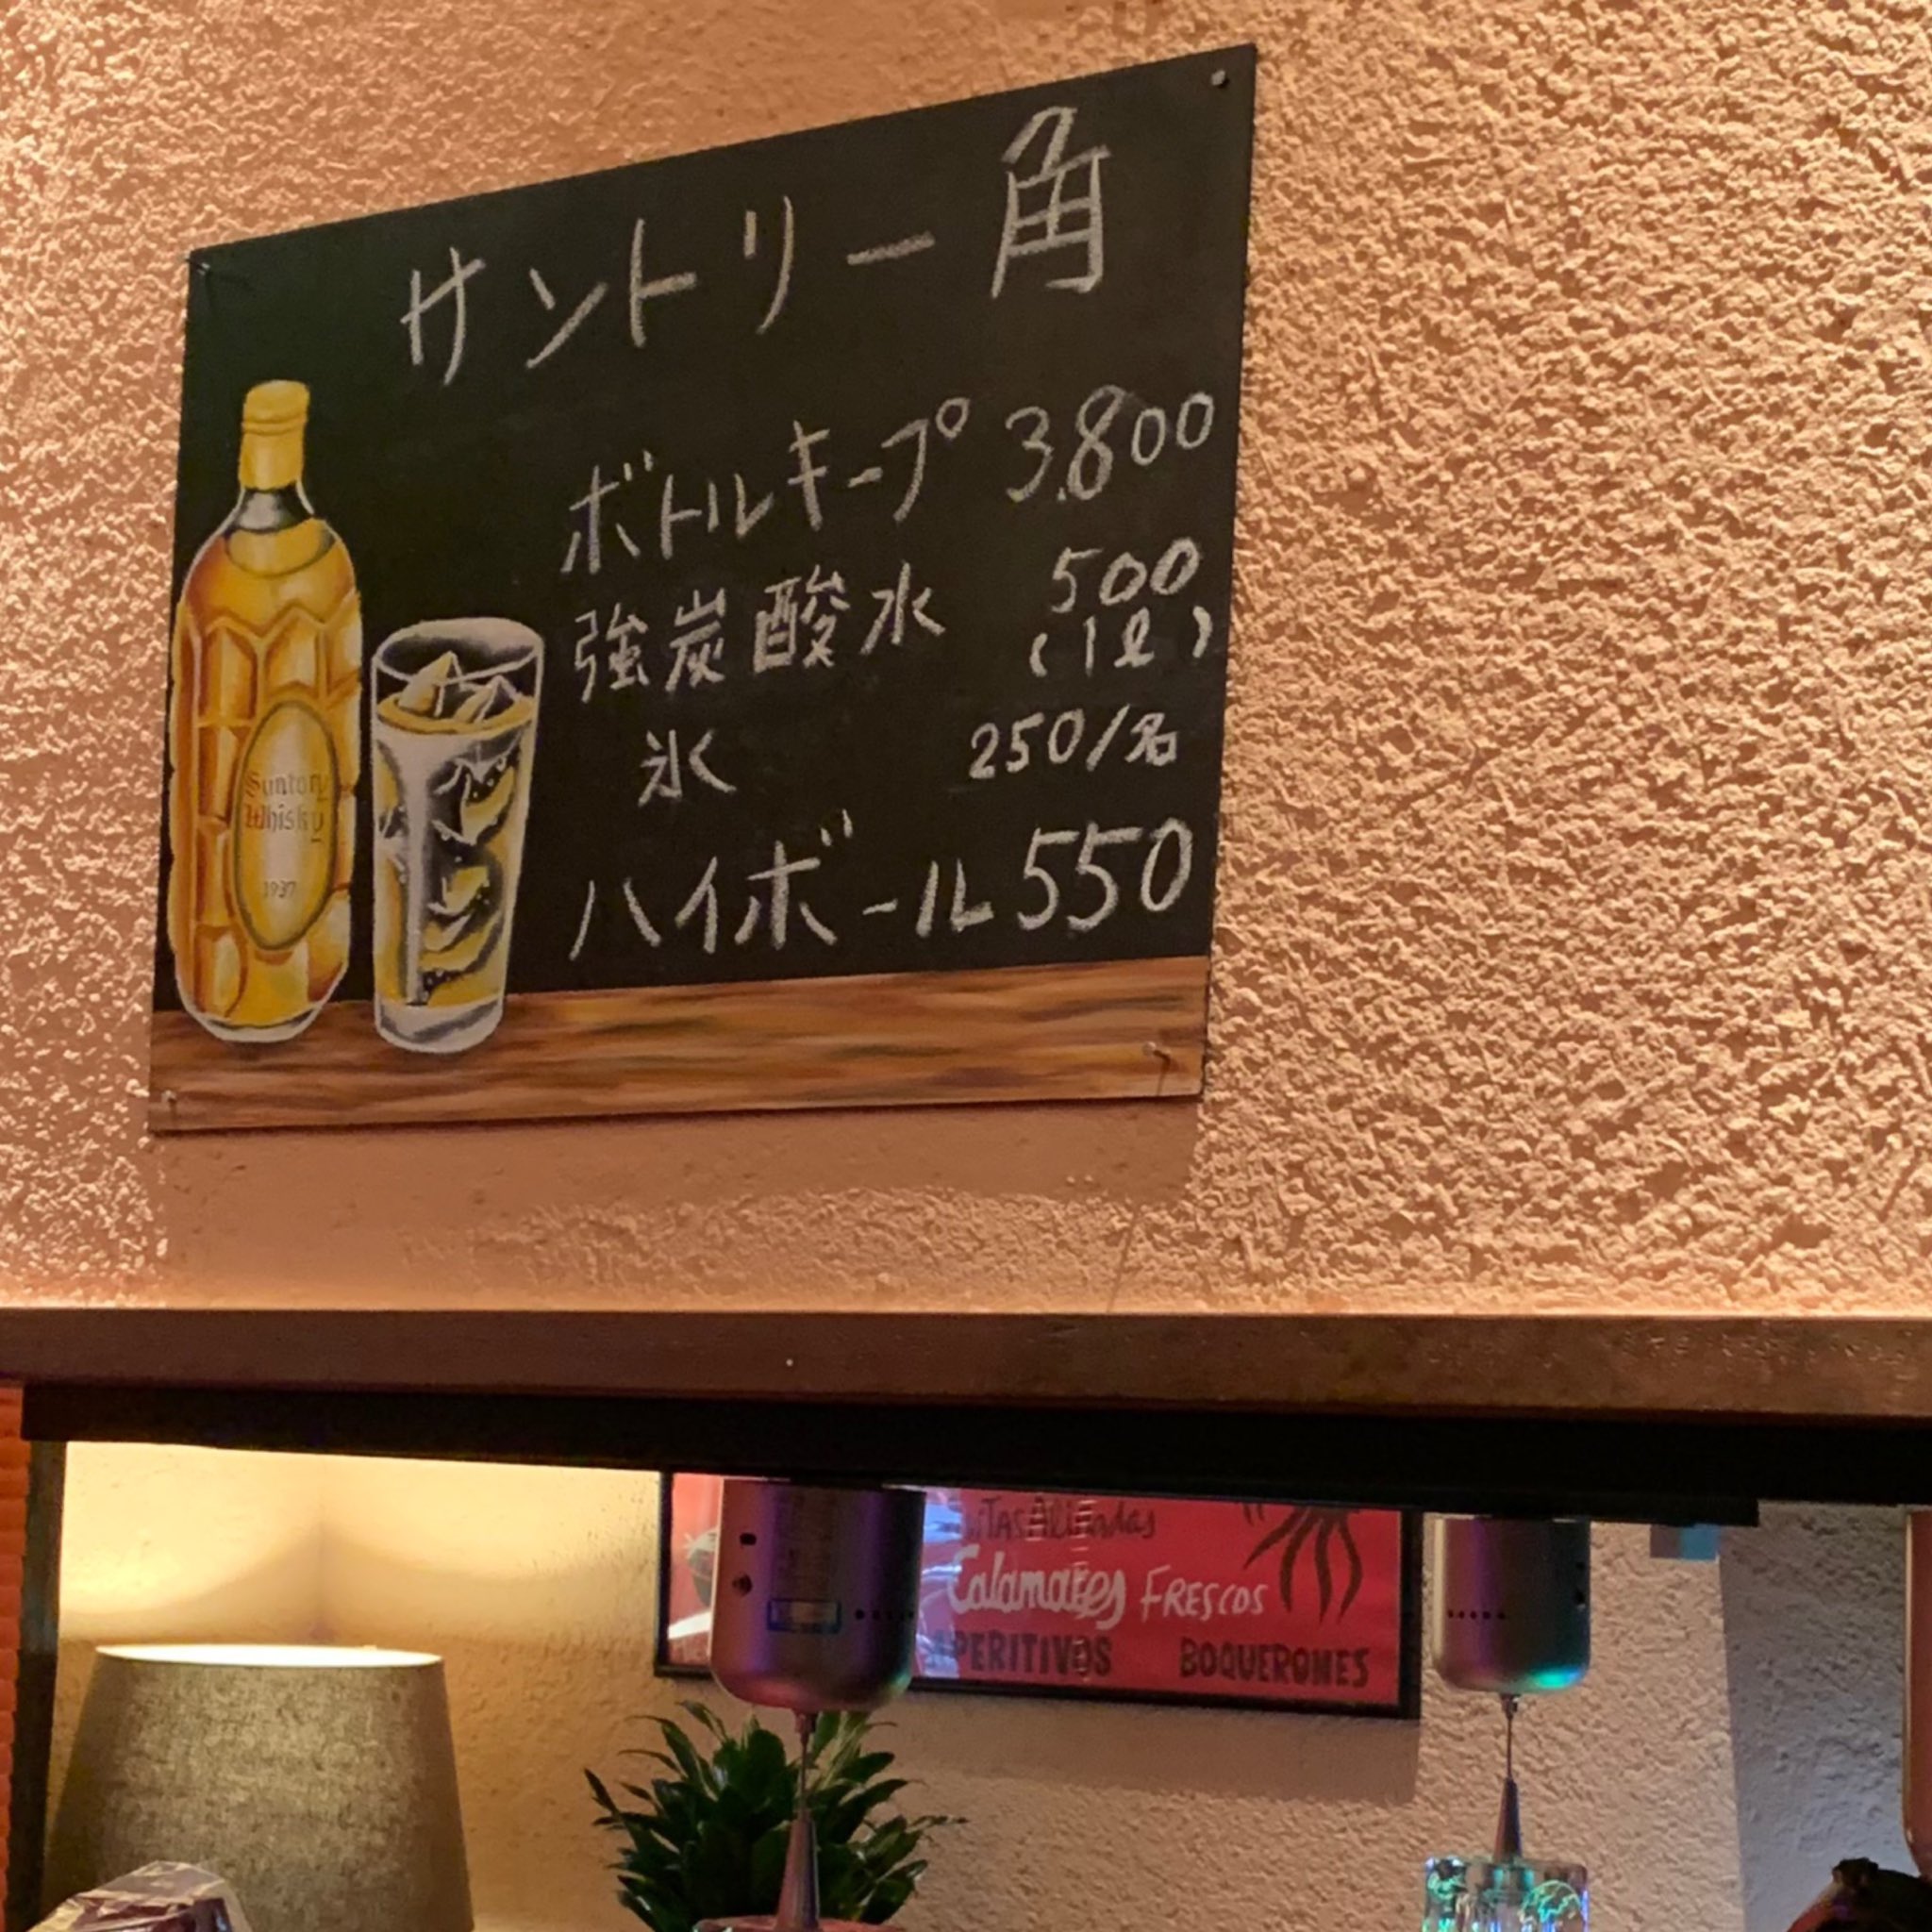 サントリー角
ボトルキープ 3,800
強炭酸水 500
(1ℓ)
氷 250/名
ハイボール 550
Suntory
Whisky
1937
Calamares FRESCOS
APERITIVOS BOQUERONES